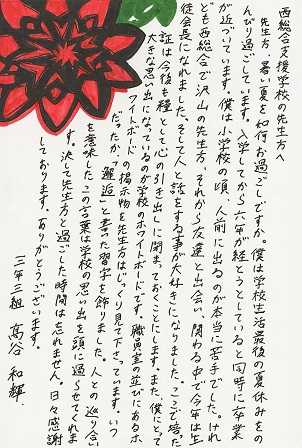 西総合支援学校の先生方へ
先生方、暑い夏を如何お過ごしですか。僕は学校生活最後の夏休みを
んびり過ごしています。入学してから六年が経とうとしていると同時に卒業
が近づいています。僕は小学校の頃、人前に出るのが本当に苦手でした。けれ
ども西総合で沢山の先生方、それから友達と出会い、関わる中で今年は生
徒会長になれました。そして人と話をする事が大好きになりました。ここで培った
証は今後も種として心の引き出しに閉まっておくことにします。また、僕にとって
大きな思い出になっているのが学校のホワイトボードです。職員室の並びにあるホ
ワイトボードの掲示物を先生方はじっくり見て下さっています。いつ
だったか、「邂逅」と書った習字を飾りました。人との巡り合い
を意味したこの言葉は学校の思い出を頭に過らせてくれま
す。決して先生方と過ごした時間は忘れません。日々感謝
しております。ありがとうございます。
三年三組 高谷 和輝